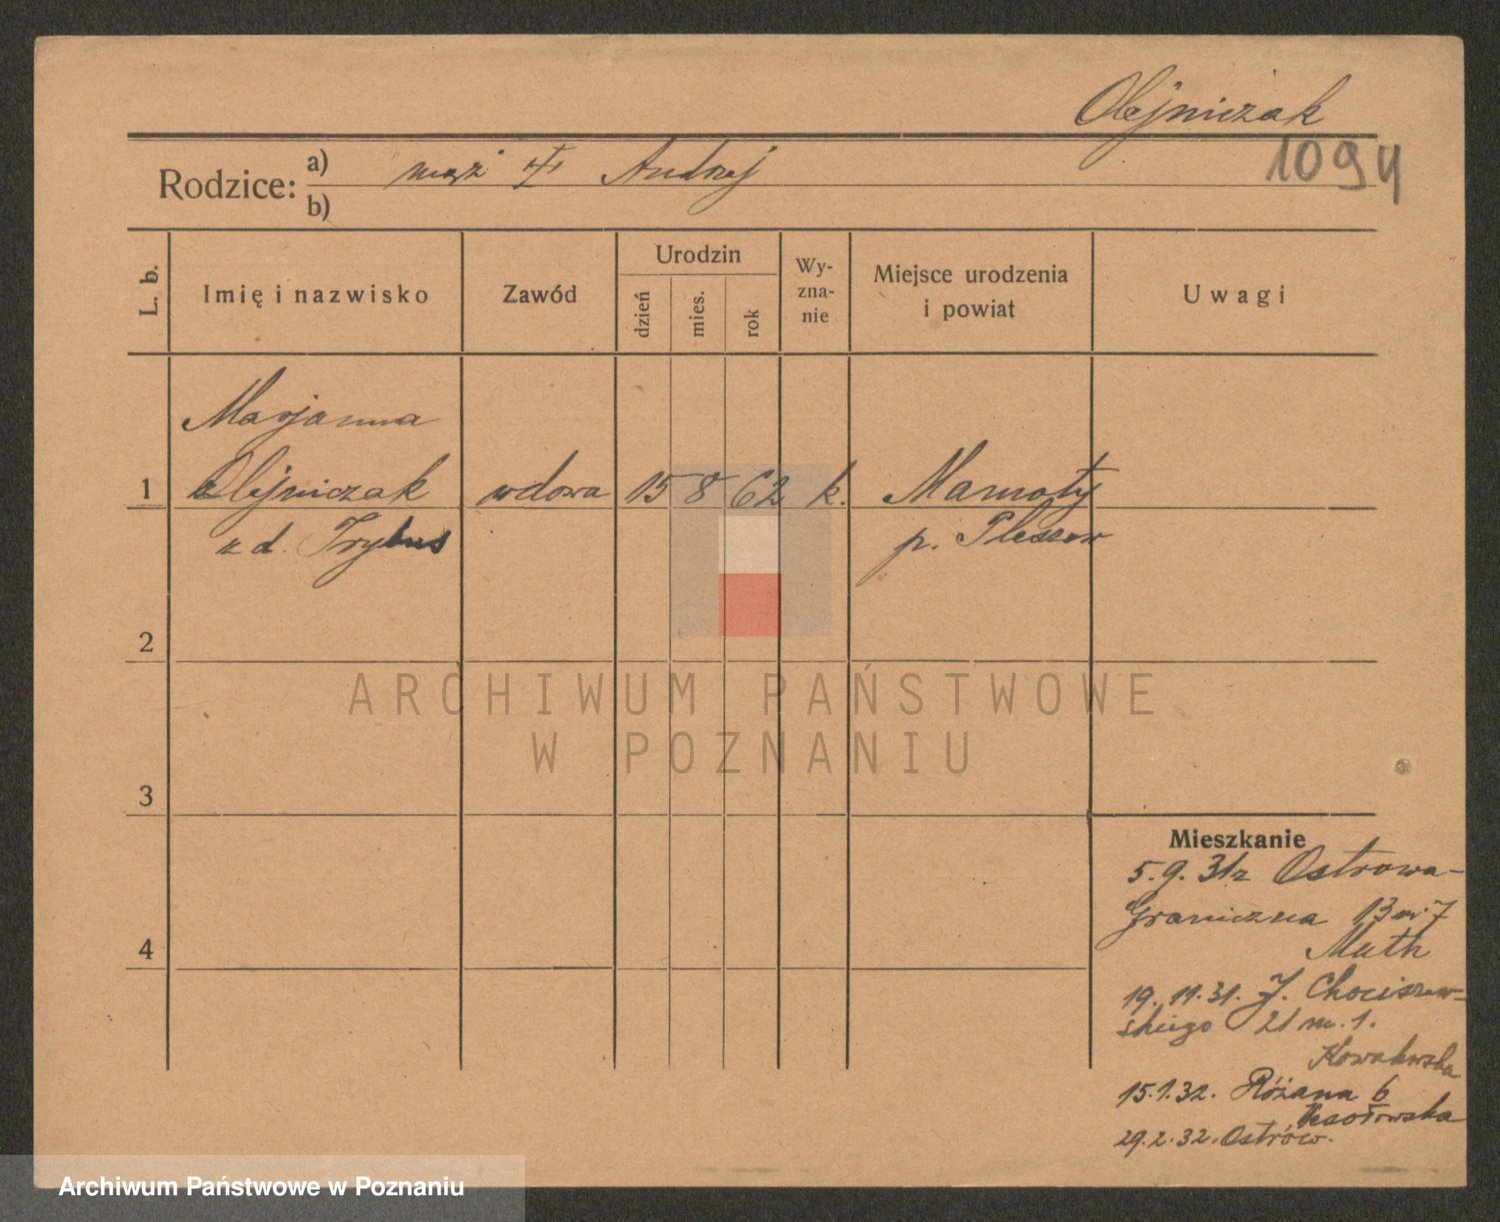 Olejniczak
1094
Rodzice: a) mąż Andrzej
b)
L. b.
Imię i nazwisko
Zawód
Urodzin
dzień
mies.
rok
Wy-
zna-
nie
Miejsce urodzenia
i powiat
Uwagi
Marjanna
1 Olejniczak wdowa 15 8 62 k. Mamoty
z d. Trybus p. Pleszew
2
ARCHIWUM PAŃSTWOWE
W POZNANIU
3
Mieszkanie
5.9.31 z Ostrowa-
Graniczna 13 m. 7
Muth
4
19.11.31. J. Chociszew-
skiego 21 m. 1.
Kowalewska
15.1.32. Różana 6
Wesołowska
29.2.32. Ostrów.
Archiwum Państwowe w Poznaniu